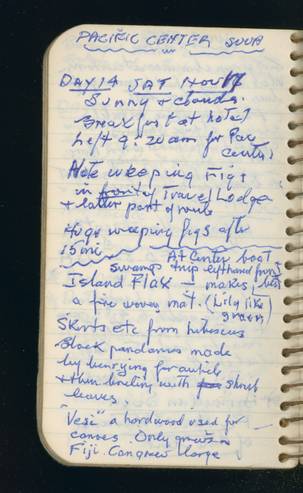 PACIFIC CENTER SUVA
DAY 14 SAT NOV 17
Sunny & clouds.
Breakfast at hotel
Left 9:20am for Pac
Center
Note weeping Figs
in front of Travel Lodge
& latter part of route
Huge weeping figs after
15 mi
At Center boat
swamp trip left hand front
Island Flax — makes best
a fine woven mat. (Lily like
green)
Skirts etc from hibiscus
Black pandanus made
by burying for a while
& then boiling with shrub
leaves.
"Vesi" a hardwood used for
canoes. Only grows in
Fiji. Can grow large